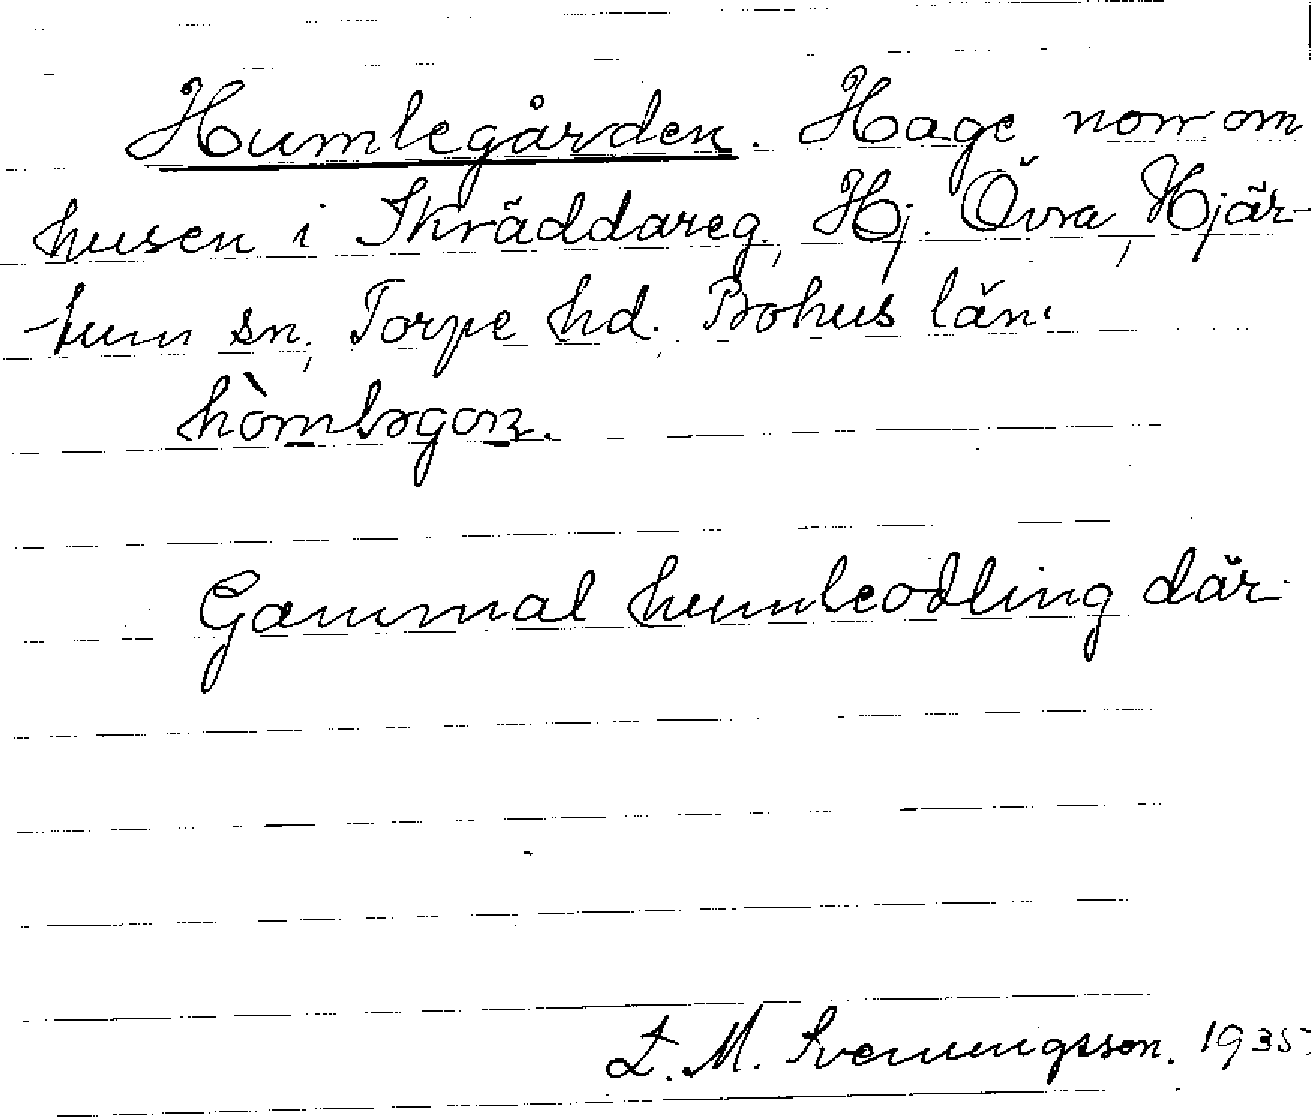 Humlegården. Hage norr om
husen i Skräddareg, Hj. Övra, Hjär-
tum sn, Torpe hd. Bohus län.
hòmləgoɳ.
Gammal humleodling där
L. M. Svenungsson. 1935